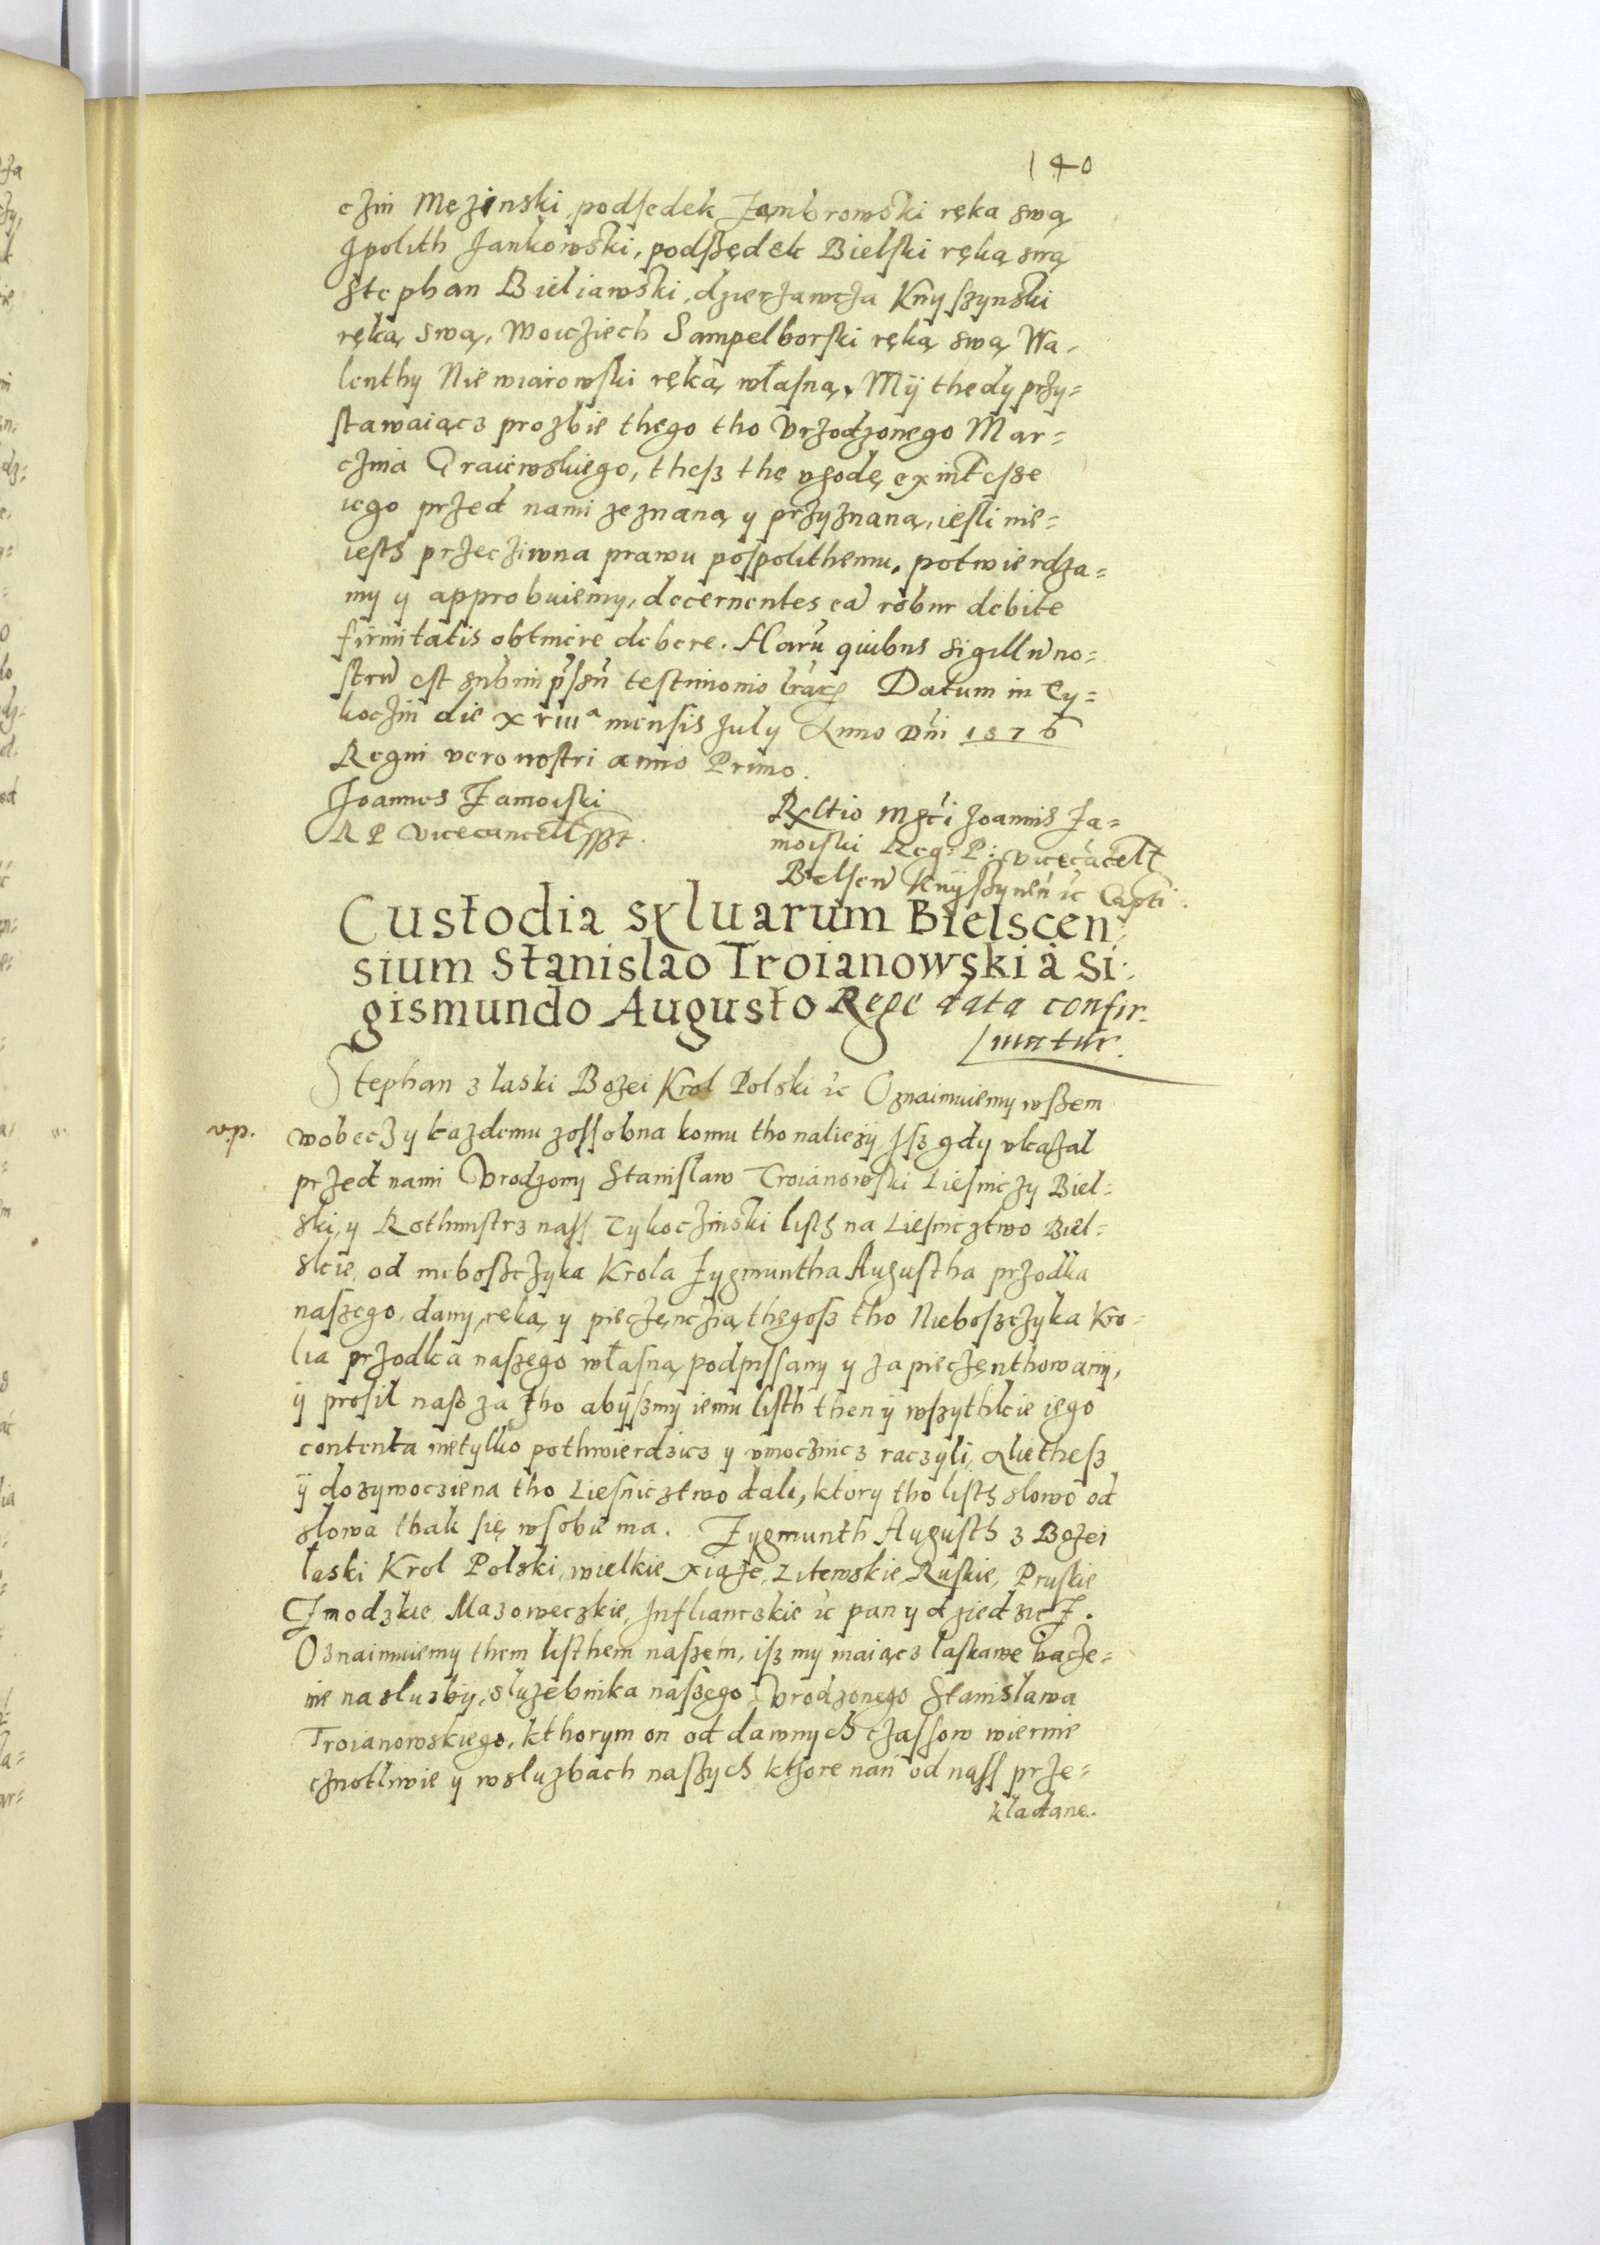 140
czin Męzinski, podsedek Zambrowski ręka swą
Ipolith Jankowski, podsędek Bielski ręką swą
Stephan Bieliawski, dzierżawcza Knyszynski
ręką swą, Woiciech Sampelborski ręką swą Wa-
lenthy Niewiarowski ręką własną. Mÿ thedy przy=
stawaiącz prozbie thego tho Vrzodzonego Mar=
czina Graiewskiego, thesz thę vgodę ex intesse
iego przed nami zeznaną y przyznaną, iesli nie=
iesth przecziwna prawu pospolithemu, potwierdza=
my y approbuiemy, decernentes eā robur debite
firmitatis obtinere debere. Harū quibus sigillū no=
strū est Datum in Ty=
koczin die xviiiᵃ mensis July Anno Dni 1576
Regni vero nostri anno Primo.
Joannes Zamoiski
R P Vicecancell sszt.
Rltio Mgci Joannis Za=
moiski Reg: P: vicecācell
Bielsen Knÿszynen ꝛc Capti.
Custodia sylvarum Bielscen
sium Stanislao Troianowski à Si-
gismundo Augusto Rege data confir-
matur.
Stephan z laski Bozei Krol Polski ꝛc Oznaimuiemy wszem
v.p.
wobecz y kazdemu zossobna komu tho naliezÿ Isz gdy vkazal
przed nami Vrodzony Stanislaw Troianowski Liesniczy Biel=
ski, y Rothmistrz nass Tykoczinski listh na Liesnicztwo Biel=
skie, od nieboszczyka Krola Zygmuntha Augustha przodka
naszego, dany, ręką y pieczęnczią thegosz tho Nieboszczyka Kro-
lia przodka naszego własną podpissany y zapieczęnthowanÿ,
ÿ prosil nasz za tho abyszmy iemu listh then ÿ wszythkie iego
contenta nietylko pothwierdzicz y vmocznicz raczyli, Alie thesz
ÿ dozywocziena tho Liesnicztwo dali, ktory tho listh slowo od
slowa thak się wsobie ma. Zygmunth Augusth z Bozei
laski Krol Polski, wielkie xiąże, Litewskie, Ruskie, Pruskie
Zmodzkie, Mazoweczkie, Infliantskie ꝛc pan y dziedzicz.
Oznaimuiemy them listhem naszem, isz my maiącz laskawe bacze=
nie na sluzbÿ, sluzebnika naszego, Vrodzonego Stanislawa
Troianowskiego, kthorym on od dawnych czassow wiernie
cznotliwie y wsluzbach naszych kthore nan od nass prze=
kładane.